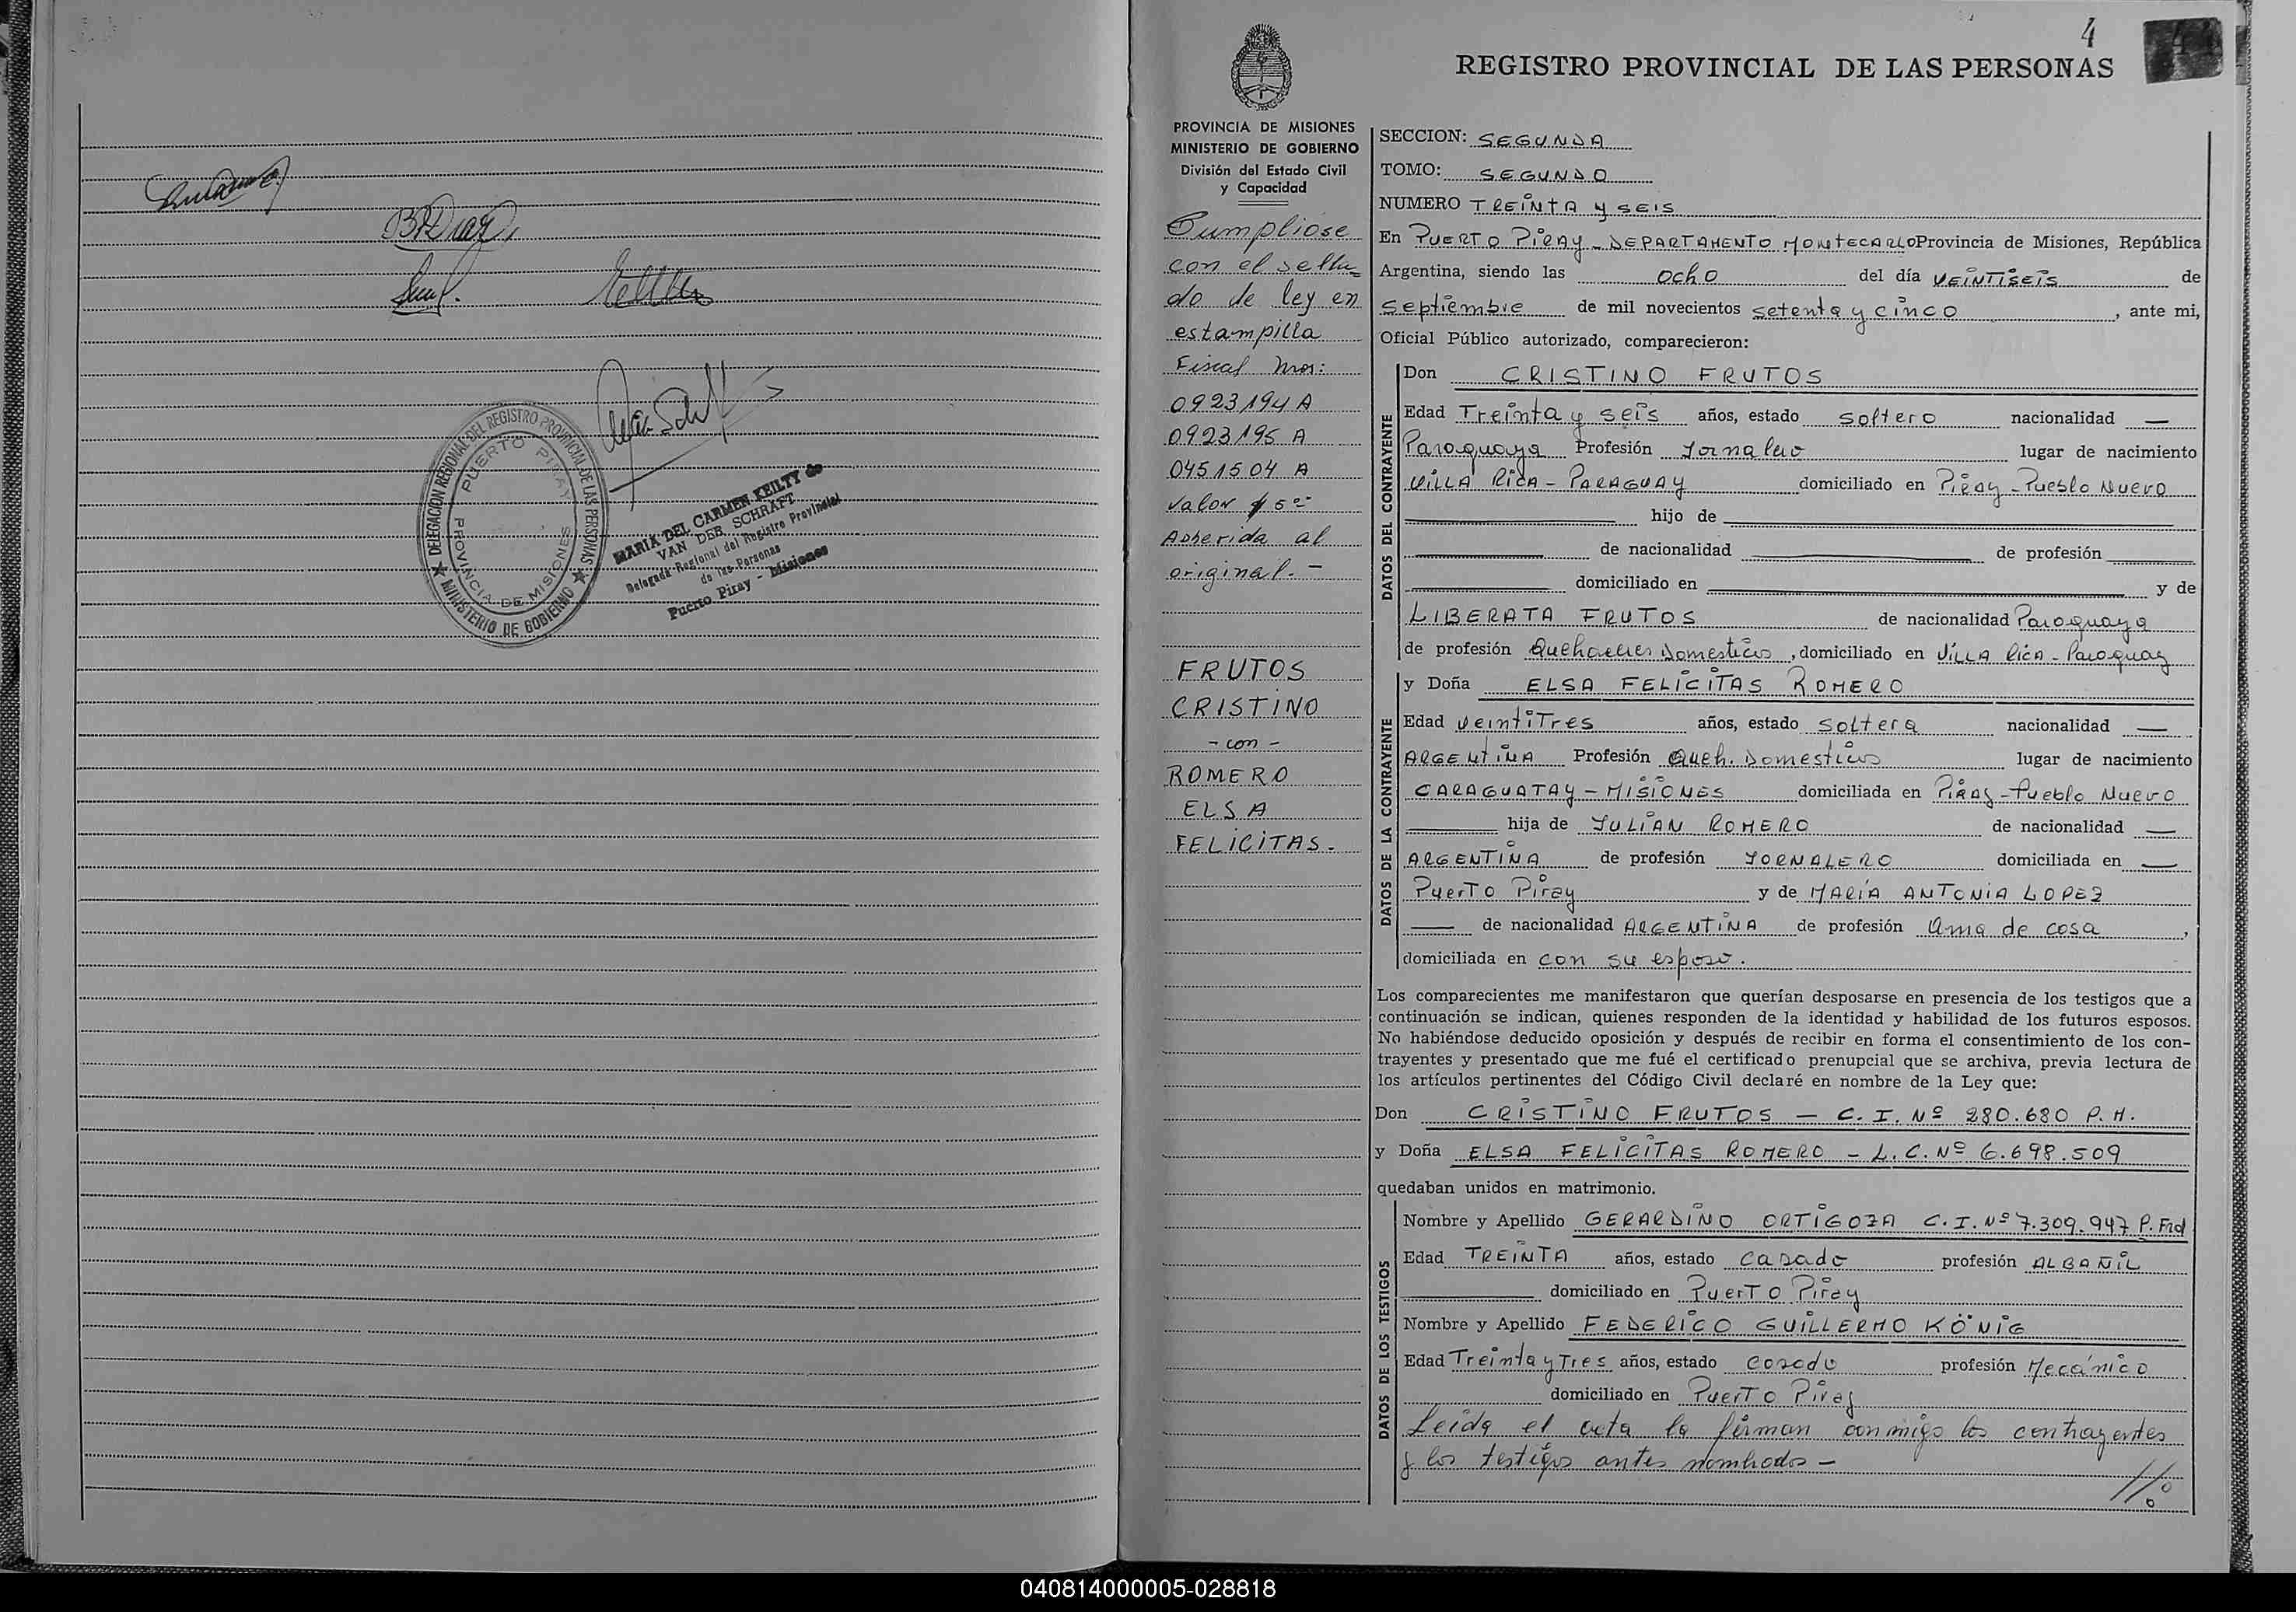 B. Diaz
DELEGACION REGIONAL DEL REGISTRO PROVINCIAL DE LAS PERSONAS
MINISTERIO DE GOBIERNO
PUERTO PIRAY
PROVINCIA DE MISIONES
MARIA DEL CARMEN KEILTY de
VAN DER SCHRAFT
Delegada Regional del Registro Provincial
de las Personas
Puerto Piray - Misiones
4
REGISTRO PROVINCIAL DE LAS PERSONAS
PROVINCIA DE MISIONES
MINISTERIO DE GOBIERNO
División del Estado Civil
y Capacidad
Cumpliose
con el sella-
do de ley en
estampilla
Fiscal nros:
0923194 A
0923195 A
0451504 A
Valor $ 5=
Adherida al
original.-
FRUTOS
CRISTINO
- con -
ROMERO
ELSA
FELICITAS.
SECCION: SEGUNDA
TOMO: SEGUNDO
NUMERO TREINTA y SEIS
En PUERTO PIRAY - DEPARTAMENTO MONTECARLO Provincia de Misiones, República
Argentina, siendo las ocho del día VEINTISEIS de
septiembre de mil novecientos setenta y cinco, ante mi,
Oficial Público autorizado, comparecieron:
DATOS DEL CONTRAYENTE
Don CRISTINO FRUTOS
Edad Treinta y seis años, estado soltero nacionalidad —
Paraguaya Profesión Jornalero lugar de nacimiento
VILLA RICA - PARAGUAY domiciliado en Piray - Pueblo Nuevo
hijo de
de nacionalidad de profesión
domiciliado en y de
LIBERATA FRUTOS de nacionalidad Paraguaya
de profesión Quehaceres Domesticos, domiciliado en VILLA Rica - Paraguay
DATOS DE LA CONTRAYENTE
y Doña ELSA FELICITAS ROMERO
Edad veintiTres años, estado soltera nacionalidad —
ARGENTINA Profesión Queh. Domesticos lugar de nacimiento
CARAGUATAY - MISIONES domiciliada en Piray - Pueblo Nuevo
hija de JULIAN ROMERO de nacionalidad —
ARGENTINA de profesión JORNALERO domiciliada en —
Puerto Piray y de MARÍA ANTONIA LOPEZ
— de nacionalidad ARGENTINA de profesión Ama de casa,
domiciliada en con su esposo.
Los comparecientes me manifestaron que querían desposarse en presencia de los testigos que a
continuación se indican, quienes responden de la identidad y habilidad de los futuros esposos.
No habiéndose deducido oposición y después de recibir en forma el consentimiento de los con-
trayentes y presentado que me fué el certificado prenupcial que se archiva, previa lectura de
los artículos pertinentes del Código Civil declaré en nombre de la Ley que:
Don CRISTINO FRUTOS — C. I. Nº 280.680 P. M.
y Doña ELSA FELICITAS ROMERO - L. C. Nº 6.698.509
quedaban unidos en matrimonio.
DATOS DE LOS TESTIGOS
Nombre y Apellido GERARDINO ORTIGOZA C. I. Nº 7.309.947 P. Frd
Edad TREINTA años, estado casado profesión ALBAÑIL
domiciliado en Puerto Piray
Nombre y Apellido FEDERICO GUILLERMO KÖNIG
Edad Treinta y Tres años, estado casado profesión Mecánico
domiciliado en Puerto Piray
Leida el acta la firman conmigo los contrayentes
y los testigos antes nombrados -
//.
040814000005-028818